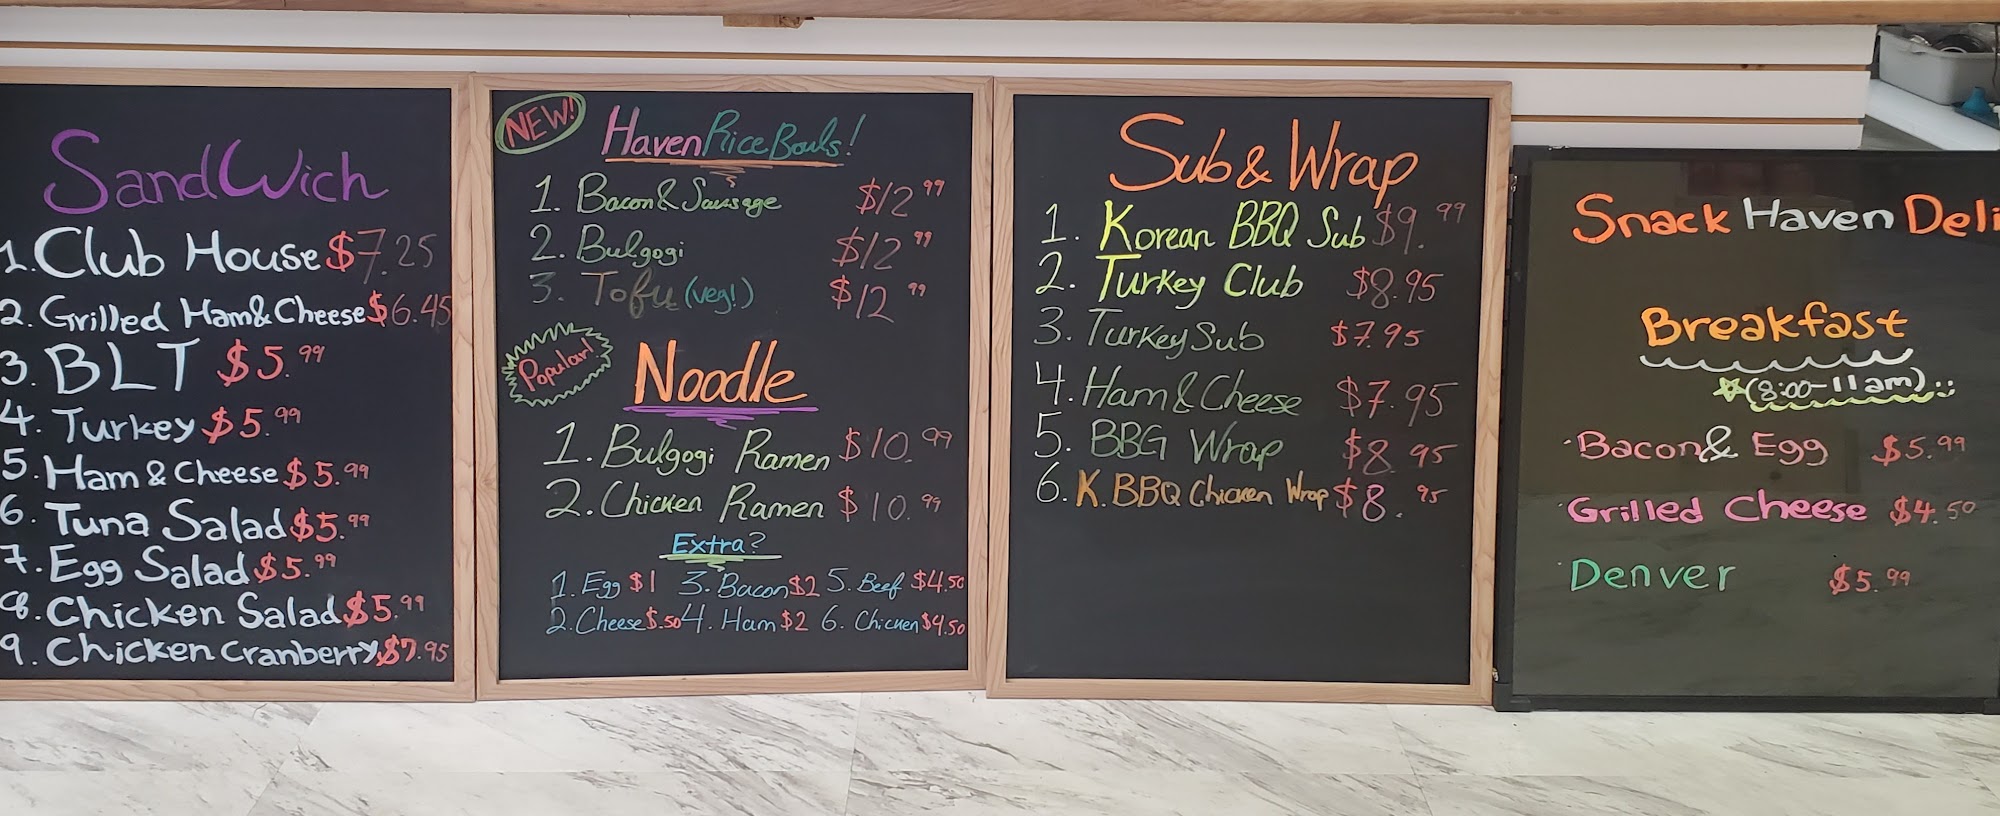 SandWich
1. Club House $7.25
2. Grilled Ham & Cheese $6.45
3. BLT $5.99
4. Turkey $5.99
5. Ham & Cheese $5.99
6. Tuna Salad $5.99
7. Egg Salad $5.99
8. Chicken Salad $5.99
9. Chicken Cranberry $7.95
NEW!
Haven Rice Bowls!
1. Bacon & Sausage $12.99
2. Bulgogi $12.99
3. Tofu (veg!) $12.99
Popular!
Noodle
1. Bulgogi Ramen $10.99
2. Chicken Ramen $10.99
Extra?
1. Egg $1 3. Bacon $2 5. Beef $4.50
2. Cheese $.50 4. Ham $2 6. Chicken $4.50
Sub & Wrap
1. Korean BBQ Sub $9.99
2. Turkey Club $8.95
3. Turkey Sub $7.95
4. Ham & Cheese $7.95
5. BBG Wrap $8.95
6. K.BBQ Chicken Wrap $8.95
Snack Haven Deli
Breakfast
(8:00-11am)
·Bacon & Egg $5.99
·Grilled Cheese $4.50
·Denver $5.99